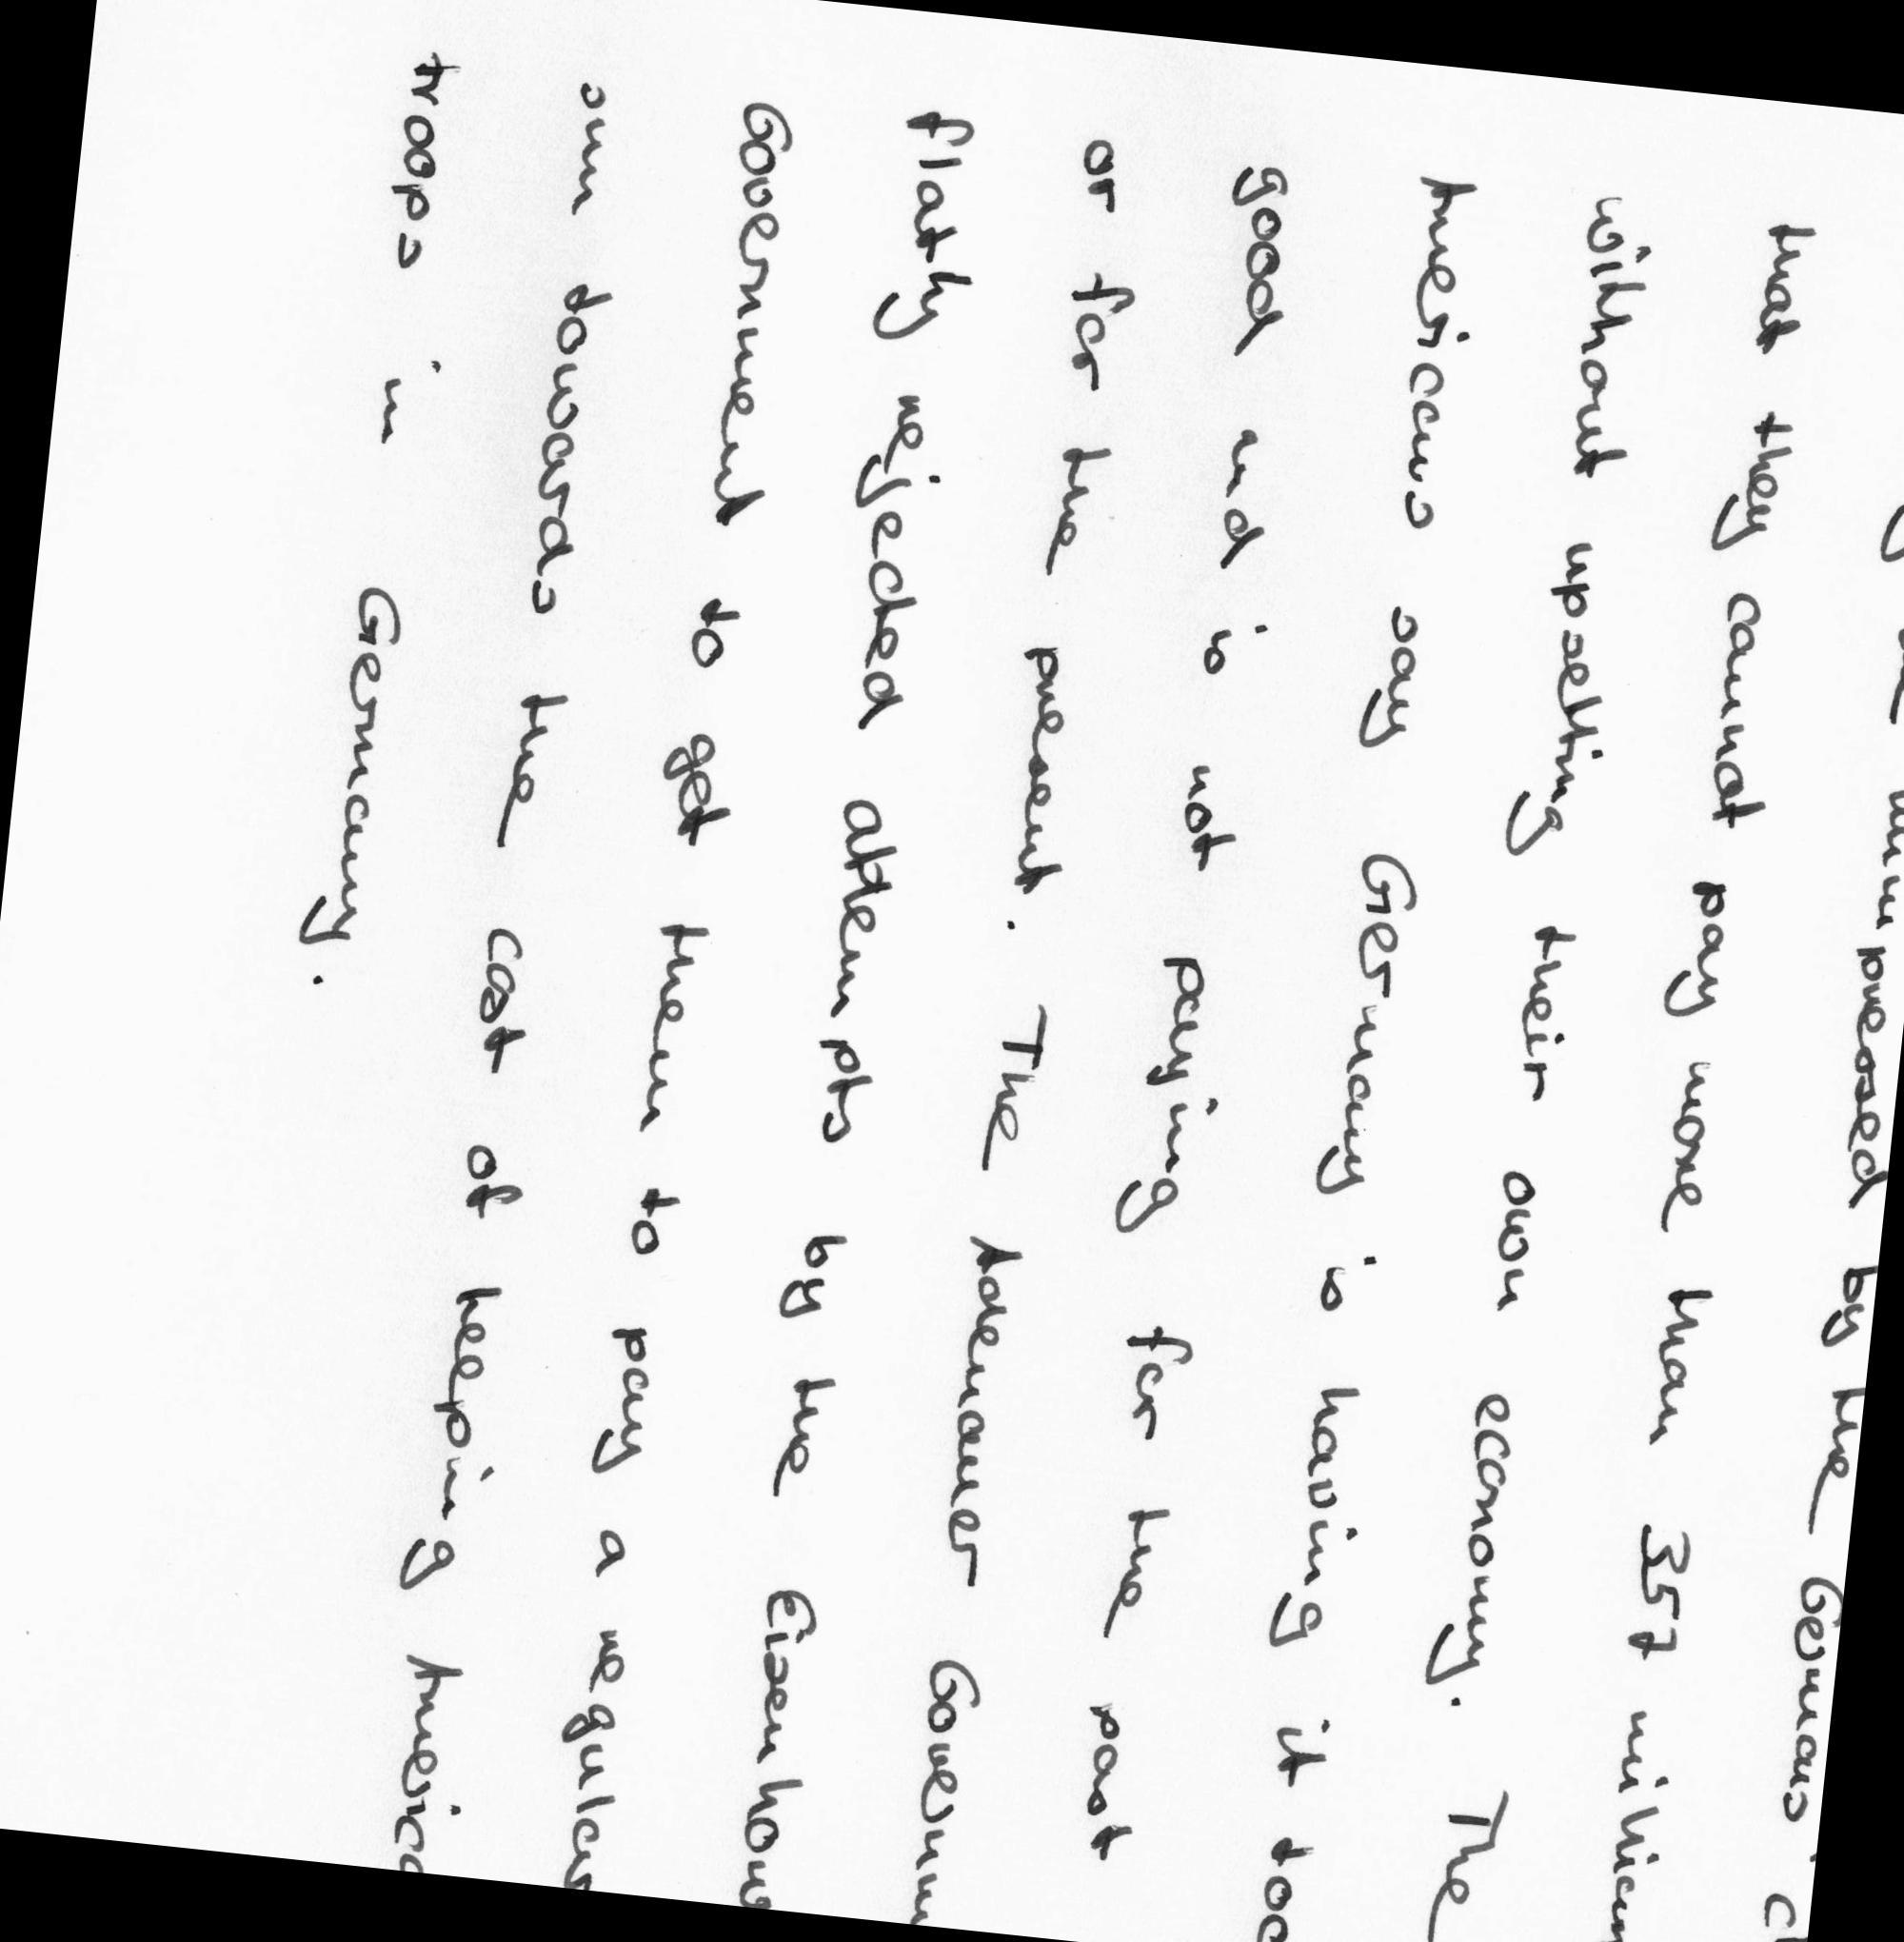 unimpressed by the Germans'
that they cannot pay more than 357 million
without upsetting their own economy. The
Americans say Germany is having it too
good and is not paying for the past
or for the present. The Adenauer Governm
flatly rejected attempts by the Eisenhow
Government to get them to pay a regular
sum towards the cost of keeping America
troops in Germany.